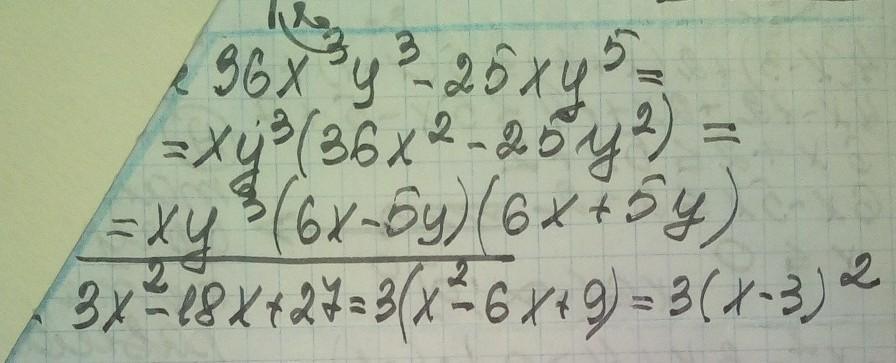 36x³y³ - 25xy⁵ =
= xy³(36x² - 25y²) =
= xy³(6x - 5y)(6x + 5y)
3x² - 18x + 27 = 3(x² - 6x + 9) = 3(x - 3)²